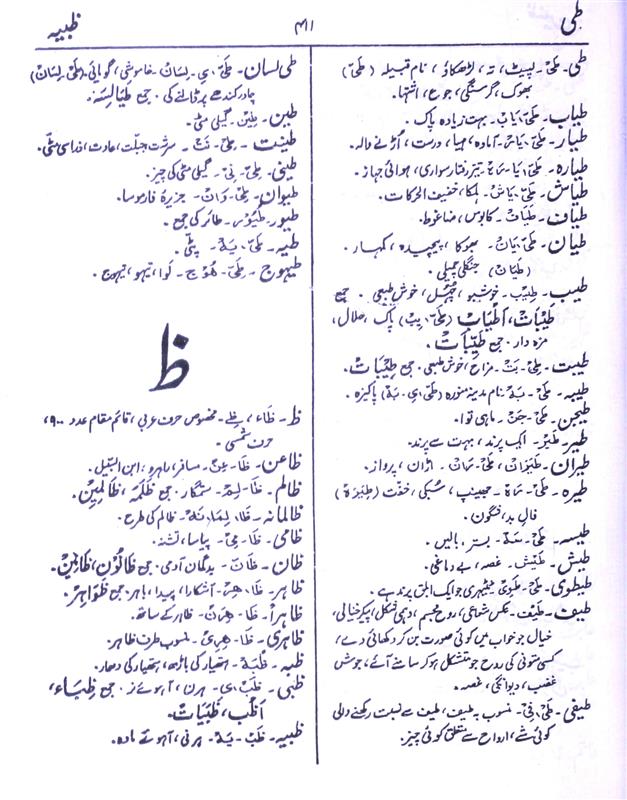 طی
۴۱۱
ظبیہ
طی۔ طَیّ۔ لپیٹ، تہ، لڑھکاؤ، نام قبیلہ (طَیّ)
بھوک، گرسنگی، جوع، اشتہا۔
طیاب۔ طَیَّ،یَابْ۔ بہت زیادہ پاک۔
طیار۔ طَیَّ،یَاسْ۔ آمادہ، مہیا، درست، اُڑنے والہ۔
طیارہ۔ طَیَّ،یَا،رَہْ۔ تیز رفتار سواری، ہوائی جہاز۔
طیاش۔ طَیَّ،یَاشْ۔ ہلکا، خفیف الحرکات۔
طیاف۔ طَیَافْ۔ کابوس، ضاغوط۔
طیان۔ طَیَّ،یَانْ۔ بھوکا، پیچیدہ، کمہار۔
(طَیَانْ) جنگلی چمیلی۔
طیب۔ طِیْبْ۔ خوشبو، چُہل، خوش طبعی۔ جمع
طِیْبَاتْ، اَطْیَابْ (طَیِّ،یِبْ) پاک، حلال،
مزہ دار۔ جمع طَیِّبَاتْ۔
طیبت۔ طِیْ۔بَتْ۔ مزاح، خوش طبعی۔ جمع طِیْبَاتْ۔
طیبہ۔ طَیْ۔بَہْ۔ نام مدینہ منورہ (طَیِّ،یِ۔بَہْ) پاکیزہ۔
طیجن۔ طَیْ۔جَنْ۔ ماہی توا۔
طیر۔ طَیْرْ۔ ایک پرند، بہت سے پرند۔
طیران۔ طَیَرَانْ، طَیْ۔رَانْ۔ اڑان، پرواز۔
طیرہ۔ طَیْ۔رَہْ۔ جھینپ، سُبکی، خفّت (طِیَرَہْ)
فالِ بد، شگون۔
طیسہ۔ طَیْ۔سَہْ۔ بستر، بالیں۔
طیش۔ طَیْشْ۔ غصہ، بے دماغی۔
طیطوی۔ طَیْ۔طَوِیْ۔ ٹیٹہری جو ایک ابلق پرند ہے۔
طیف۔ طَیْفْ۔ عکسِ شعاعی، روحِ مجسم، وہمی شکل، پیکرِ خیالی،
خیال جو خواب میں کوئی صورت بن کر دکھائی دے،
کسی متوفی کی روح جو متشکل ہو کر سامنے آئے، جوش
غضب، دیوانگی، غصہ۔
طیفی۔ طَیْ،فِیْ۔ منسوب بہ طیف، طیف سے نسبت رکھنے والی
کوئی شے، ارواح سے متعلق کوئی چیز۔
طی لسان۔ طَیِّ،ی۔لِسَانْ۔ خاموشی، گویائی۔ (طَیْ،لِسَانْ)
چادر کندھے پر ڈالنے کی۔ جمع طَیَالِسَہ۔
طین۔ طِیْنْ۔ گیلی مٹی۔
طینت۔ طِیْ۔نَتْ۔ سرشت، جبلت، عادت، ذرا سی مٹی۔
طینی۔ طِیْ۔نِیْ۔ گیلی مٹی کی چیز۔
طیوان۔ طَیْ۔وَانْ۔ جزیرۂ فارموسا۔
طیور۔ طُیُوْرْ۔ طائر کی جمع۔
طیہ۔ طَیّ۔یَہْ۔ پٹّی۔
طیہوج۔ طَیْ۔ھُوْج۔ لَوا، تیہو، تیہوج۔
ظ
ظ۔ ظَاء، ظے۔ مخصوص حرف عربی، قائم مقام عدد ۹۰۰،
حرفِ شمسی۔
ظاعن۔ ظَا۔عِنْ۔ مسافر، راہرو، ابن السبیل۔
ظالم۔ ظَا۔لِمْ۔ ستمگار۔ جمع ظَلَمَہْ، ظَالِمِیْن۔
ظالمانہ۔ ظَا،لِمَا،نَہْ۔ ظالم کی طرح۔
ظامی۔ ظَا۔مِیْ۔ پیاسا، تشنہ۔
ظان۔ ظَانّ۔ بدگمان آدمی۔ جمع ظَانُّوْن، ظَانِّیْن۔
ظاہر۔ ظَا،ھِرْ۔ آشکارا، پیدا، باہر۔ جمع ظَوَاہِرْ۔
ظاہراً۔ ظَا۔ھِرَنْ۔ ظاہر کے ساتھ۔
ظاہری۔ ظَا۔ھِرِیْ۔ منسوب طرف ظاہر۔
ظبہ۔ ظُبَہْ۔ ہتھیار کی باڑھ، ہتھیار کی دھار۔
ظبی۔ ظَبْ،ی۔ ہرن، آہوئے نر۔ جمع ظِبَاء،
اَظْب، ظَبِیَات۔
ظبیہ۔ ظَبْ۔یَہْ۔ ہرنی، آہوئے مادہ۔